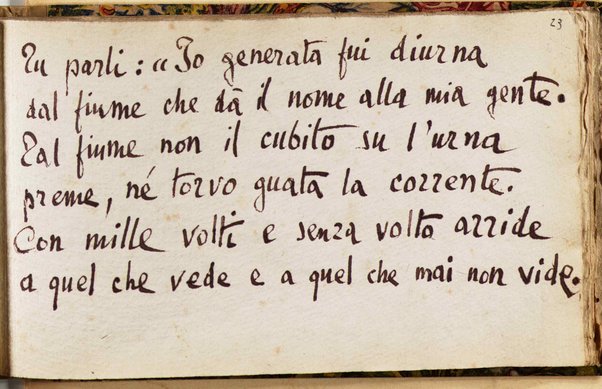 23
Tu parli: «Io generata fui diurna
dal fiume che dà il nome alla mia gente.
Tal fiume non il cubito su l'urna
preme, né torvo guata la corrente.
Con mille volti e senza volto arride
a quel che vede e a quel che mai non vide.